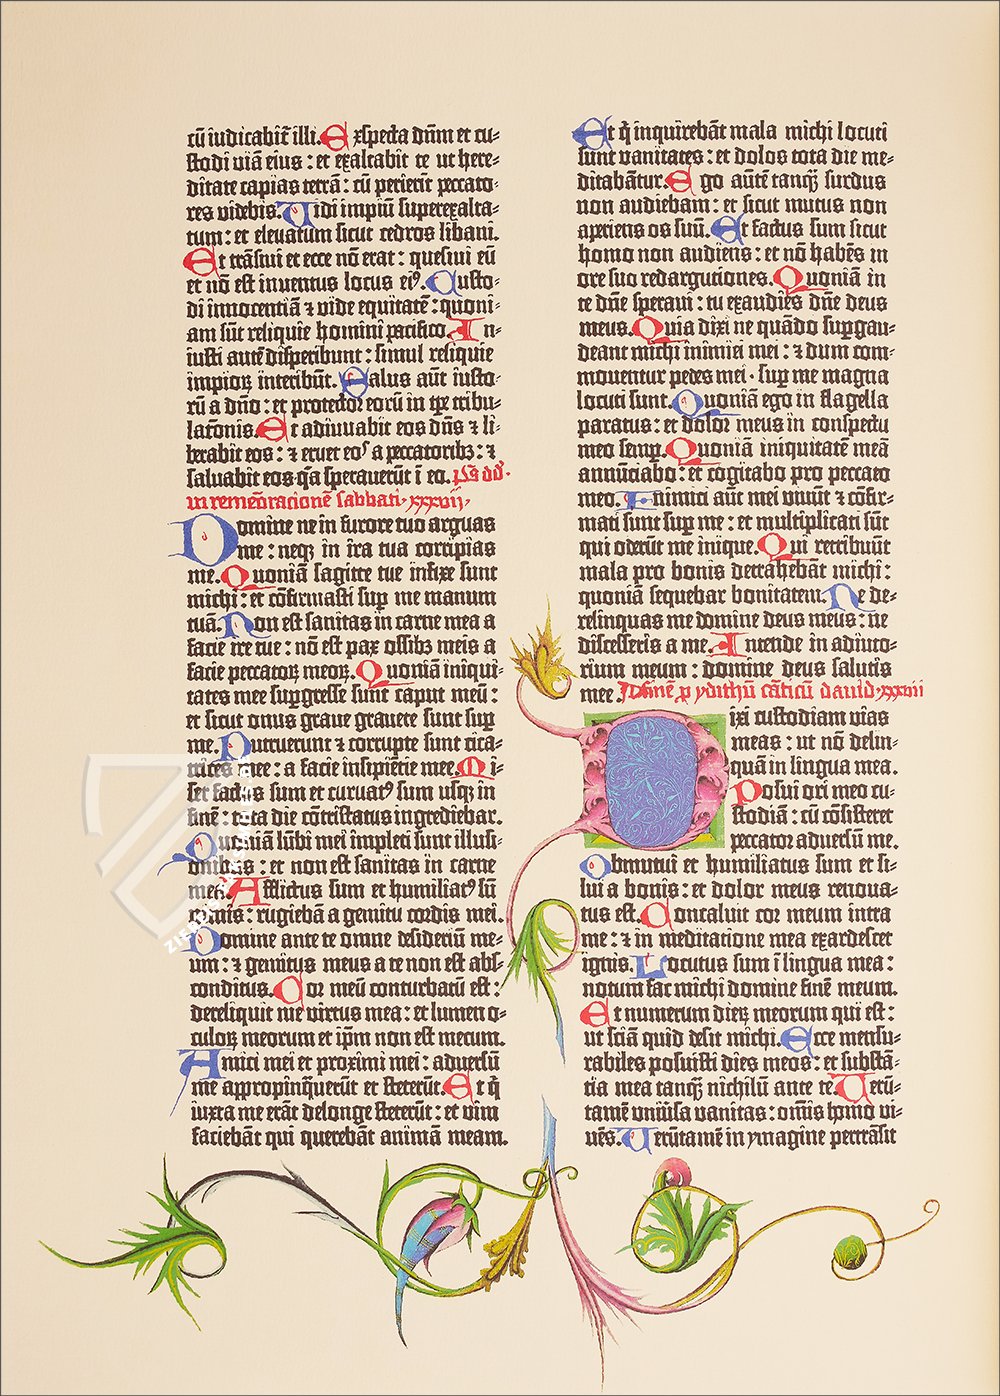 cū iudicabiť illi. Exspecta dñm et cu⸗
stodi viā eius : et exaltabit te ut here⸗
ditate capias terrā : cū perierīt peccato⸗
res videbis. Uidi impiū superexalta⸗
tum : et elevatum sicut cedros libani.
Et trāsivi et ecce nō erat : quesivi eū
et nō est inventus locus ei⁹. Custo⸗
di innocentiā ⁊ vide equitatē : quoni⸗
am sūt reliquie homini pacifico. In⸗
iusti autē disperibunt : simul reliquie
impioꝝ interibūt. Salus aūt iusto⸗
rū a dño : et protector eorū in tꝑe tribu⸗
latōnis. Et adiuvabit eos dñs ⁊ li⸗
berabit eos : ⁊ eruet eos a peccatoribꝫ : ⁊
salvabit eos · q̄a speraverūt ī eo. ps̄ dd̄ ·
in remem̄oracionē sabbati · xxxvii ·
Domine ne in furore tuo arguas
me : neqꝫ in ira tua corripias
me. Quoniā sagitte tue infixe sunt
michi : et cōfirmasti suꝑ me manum
tuā. Non est sanitas in carne mea a
facie ire tue : nō est pax ossibꝫ meis a
facie peccatoꝝ meoꝝ. Quoniā iniqui⸗
tates mee suꝑgresse sunt caput meū :
et sicut onus grave gravate sunt suꝑ
me. Putruerunt ⁊ corrupte sunt cica⸗
trices mee : a facie insipiētie mee. Mi⸗
ser factus sum et curvat⁹ sum usqꝫ in
finē : tota die cōtristatus ingrediebar.
Quoniā lūbi mei impleti sunt illusi⸗
onibus : et non est sanitas in carne
mea. Afflictus sum et humiliat⁹ sū
nimis : rugiebā a gemitu cordis mei.
Domine ante te omne desideriū me⸗
um : ⁊ gemitus meus a te non est abs⸗
conditus. Cor meū conturbatū est :
dereliquit me virtus mea : et lumen o⸗
culoꝝ meorum et ip̄m non est mecum.
Amici mei et proximi mei : adversū
me appropinq̄verūt et steterūt. Et q̄
iuxta me erāt de longe steterūt : et vim
faciebāt qui querebāt animā meam.
Et q̄ inquirebāt mala michi locuti
sunt vanitates : et dolos tota die me⸗
ditabātur. Ego autē tanqꝫ surdus
non audiebam : et sicut mutus non
aperiens os suū. Et factus sum sicut
homo non audiens : et nō habēs in
ore suo redargutiones. Quoniā in
te dñe speravi : tu exaudies dñe deus
meus. Quia dixi ne quādo suꝑgau⸗
deant michi inimici mei : ⁊ dum com⸗
moventur pedes mei · suꝑ me magna
locuti sunt. Quoniā ego in flagella
paratus : et dolor meus in conspectu
meo semꝑ. Quoniā iniquitatē meā
annūciabo : et cogitabo pro peccato
meo. Inimici aūt mei vivūt ⁊ cōfir⸗
mati sunt suꝑ me : et multiplicati sūt
qui oderūt me inique. Qui retribuūt
mala pro bonis detrahebāt michi :
quoniā sequebar bonitatem. Ne de⸗
relinquas me domine deus meus : ne
discesseris a me. Intende in adiuto⸗
rium meum : domine deus salutis
mee. In finē ꝓ ydithū cāticū david · xxxviii
Dixi custodiam vias
meas : ut nō delin⸗
quā in lingua mea.
Posui ori meo cu⸗
stodiā : cū cōsisteret
peccator adversū me.
Obmutui et humiliatus sum et si⸗
lui a bonis : et dolor meus renova⸗
tus est. Concaluit cor meum intra
me : ⁊ in meditatione mea exardescet
ignis. Locutus sum ī lingua mea :
notum fac michi domine finē meum.
Et numerum dieꝝ meorum qui est :
ut sciā quid desit michi. Ecce mensu⸗
rabiles posuisti dies meos : et substā⸗
tia mea tanqꝫ nichilū ante te. Verū⸗
tamē univ̄sa vanitas : om̄is homo vi⸗
vēs. Verūtamē in ymagine pertrāsit